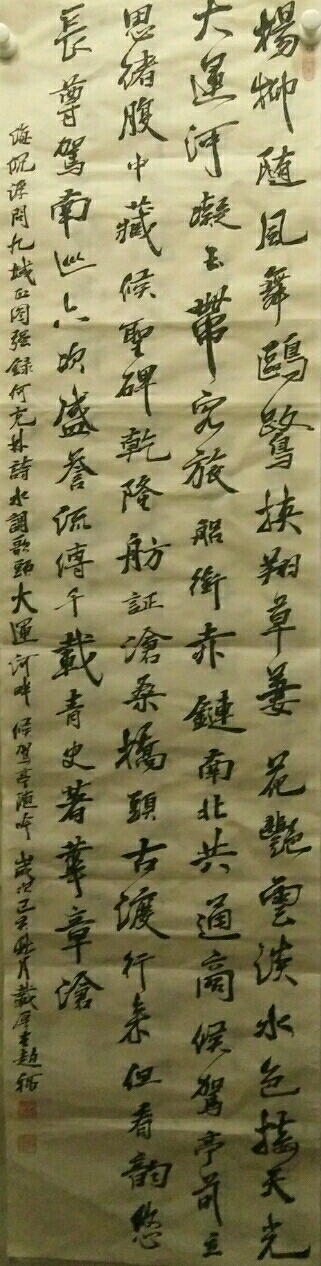 楊柳随風舞鷗鷺挾翔草萋花艷雲淡水色接天光
大運河凝玉帶客旅船銜赤鏈南北共通商候駕亭前立
思绪腹中藏候聖碑乾隆舫証滄桑橋頭古渡行来但看韵悠
長尊駕南巡六次盛誉流傳千載青史著華章滄
海况譚问九城正図强録何克林詩水調歌頭大運河畔候駕亭随吟歲次己亥